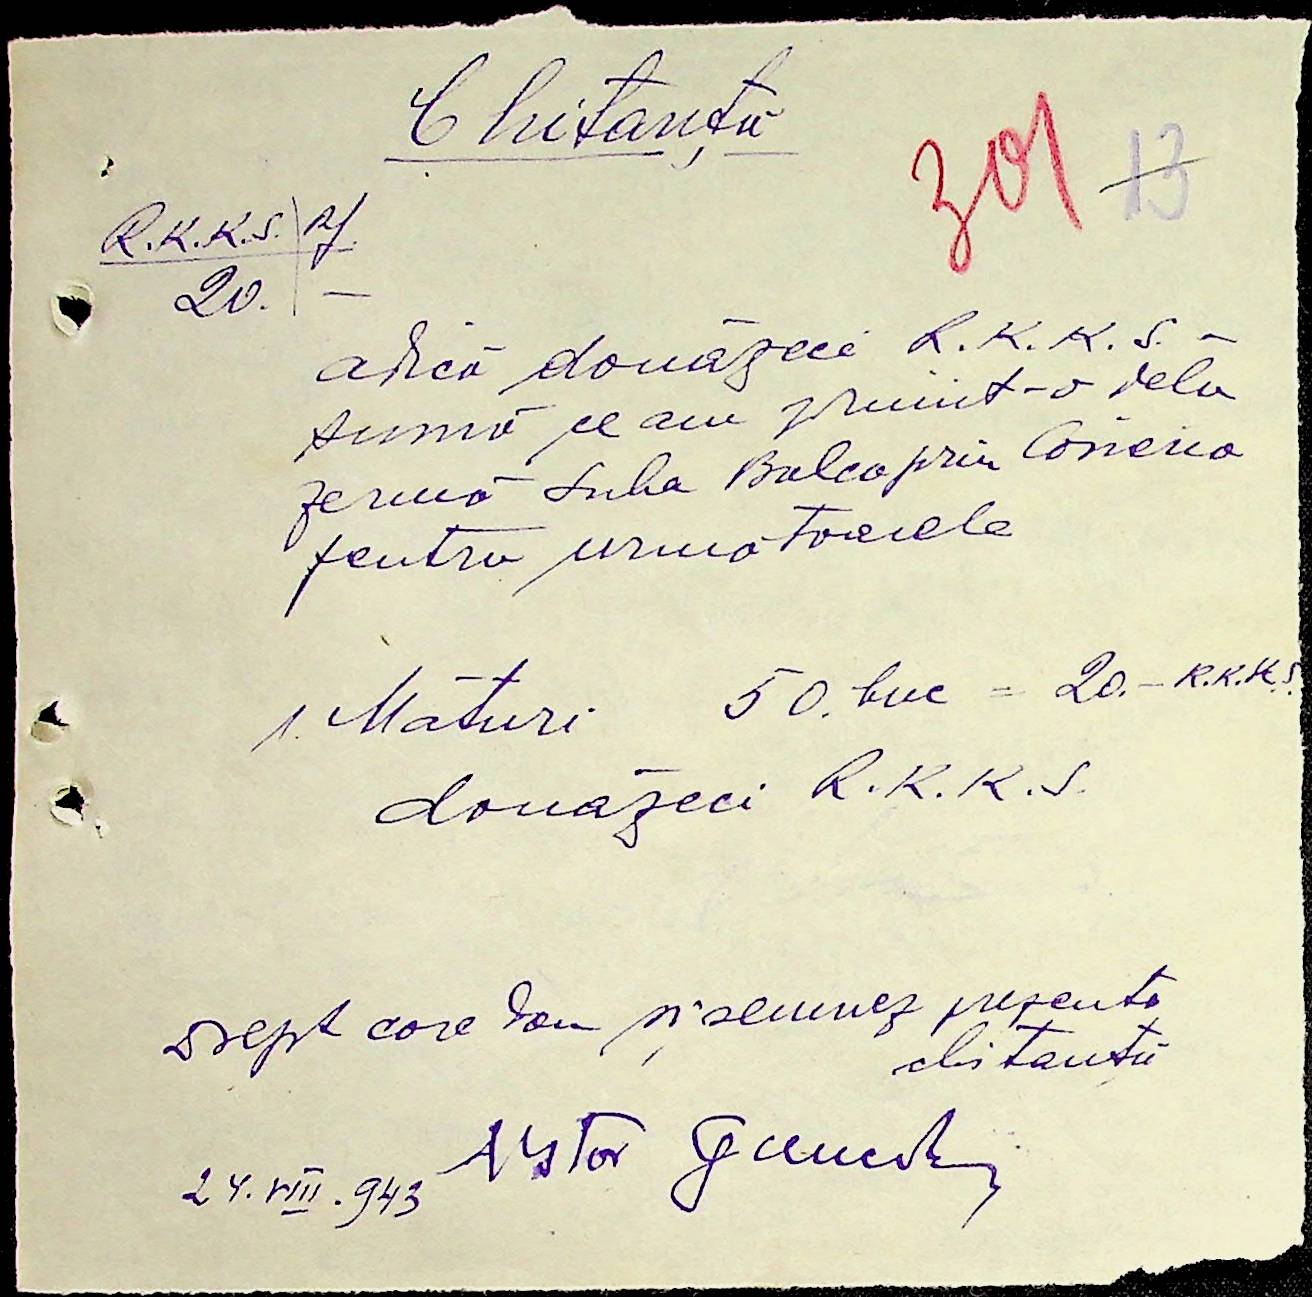 Chitanță
301 13
R.K.K.S. pf.
20. —
adică douăzeci R.K.K.S. —
sumă ce am primit-o dela
fermă Suha Balca prin
pentru următoarele
1. Mături 50. buc = 20.— R.K.K.S.
douăzeci R.K.K.S.
drept care dau și semnez prezenta
chitanță
24.VIII.943 Nistor